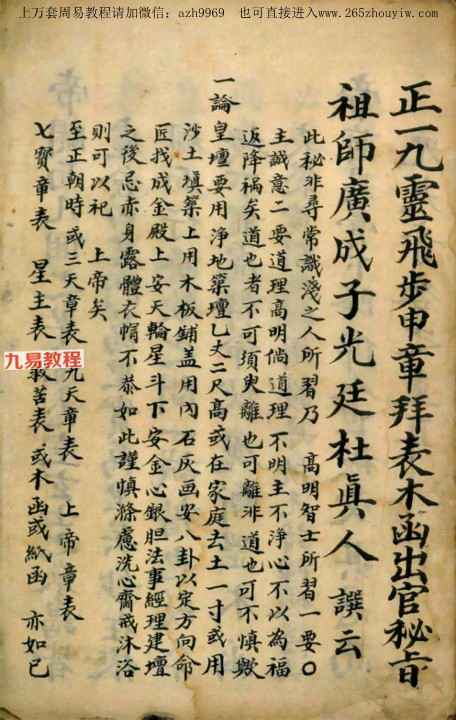 上万套周易教程请加微信：azh9969 也可直接进入www.265zhouyiw.com
正一九靈飛步申章拜表木函出官秘旨
祖師廣成子光廷杜眞人 譔云
此秘非尋常識淺之人所習乃 高明智士所習一要〇
主誠意二要道理高明倘道理不明主不淨心不以為福
返降禍矣道也者不可須臾離也可離非道也可不慎歟
一論皇壇要用淨地築壇乙丈二尺高或在家庭去土一寸或用
沙土填築上用木板鋪盖用內石灰画安八卦以定方向命
匠找成金殿上安天輪星斗下安金心銀胆法事經理建壇
之後忌赤身露體衣帽不恭如此謹慎滌慮洗心齋戒沐浴
則可以祀 上帝矣
至正朝時或三天章表 九天章表 上帝章表
七寶章表 星主表 救苦表 或木函或紙函 亦如已
九易教程